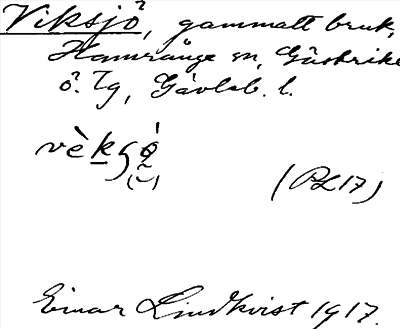 Viksjö, gammalt bruk,
Hamrånge sn, Gästrikl
ö. Tg, Gävleb. l.
vèksǫ́
(PL17)
Einar Lindkvist 1917.